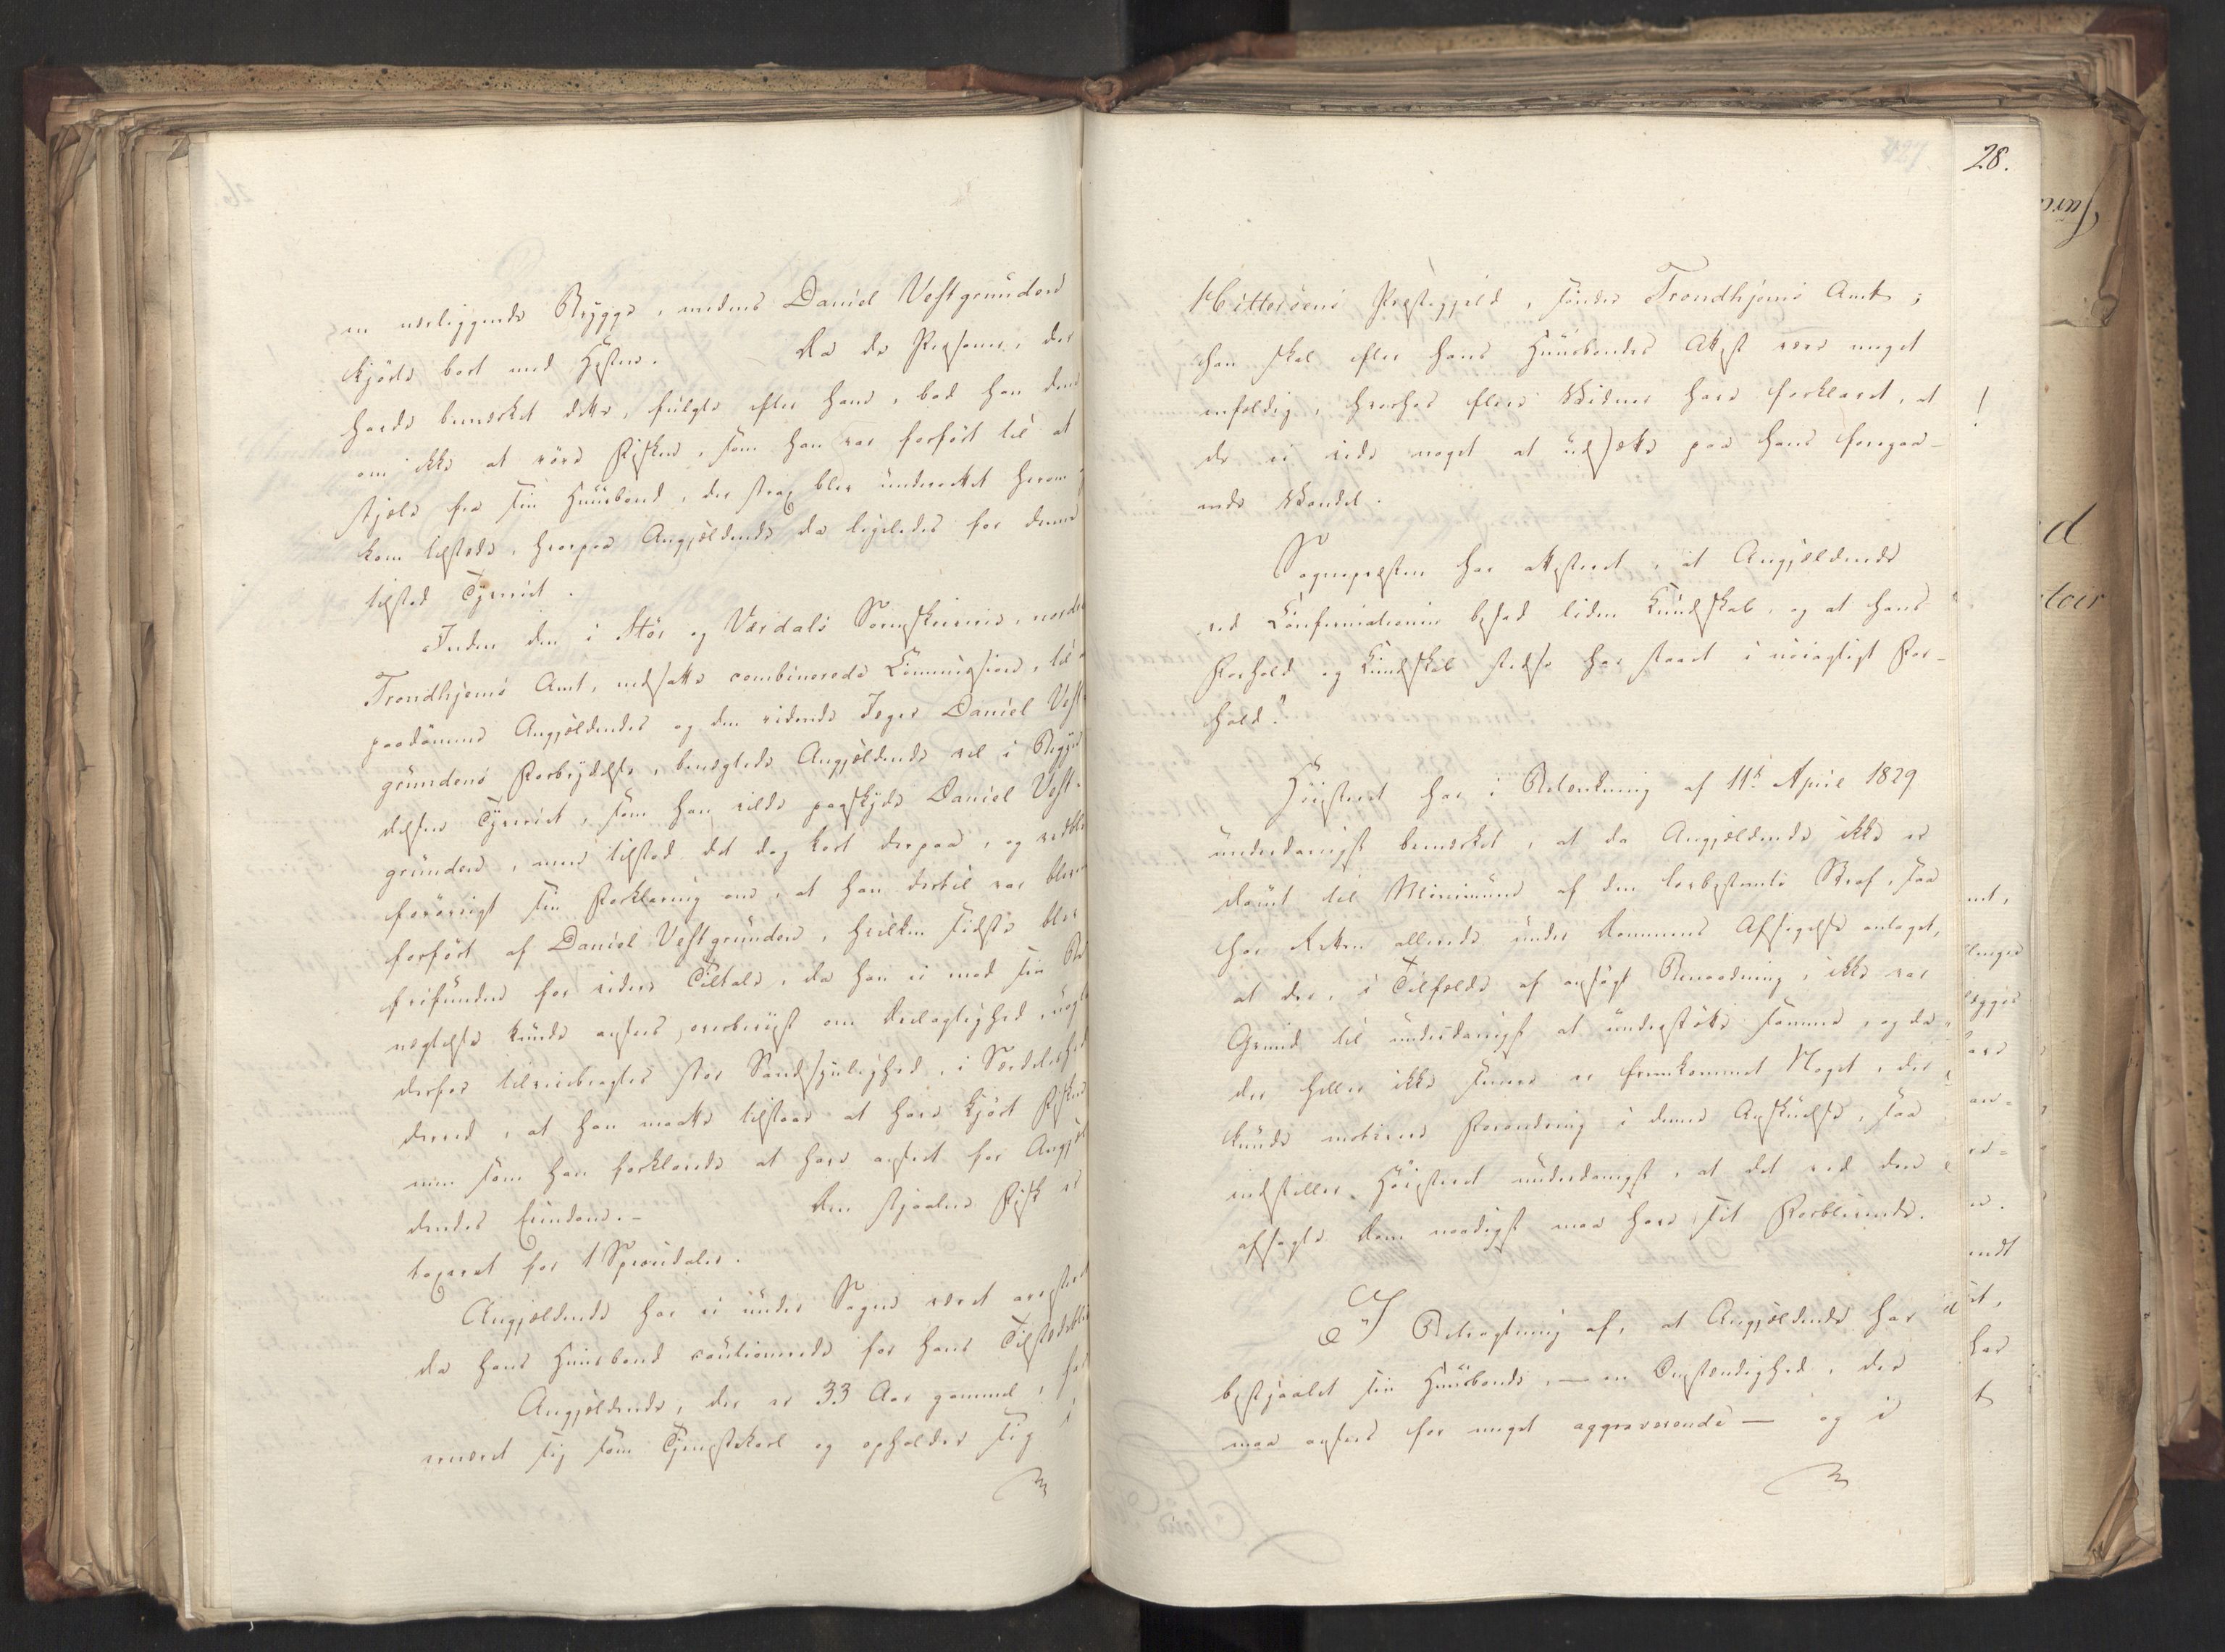 en nærliggende Brygge, medens Daniel Vestgrunden
kjörte bort med Hesten. Da de Personer, der
havde bemærket dette, fulgte efter ham, bad han dem
om ikke at röre Fisken, som han var forfört til at
stjæle fra sin Huusbond, der strax blev underrettet herom
kom tilstede, hvorpaa Angjældende da ligeledes for denne
tilstod Tyveriet.
Inden den i Stör og Værdals Sorenskriverie, nordre
Trondhjems Amt, nedsatte combinerede Commission, til
paadömme Angjældendes og den ridende Jæger Daniel Vest
grundens Forbrydelse, benægtede Angjældende vel i Begyn
delsen Tyveriet, som han vilde paaskyde Daniel Vest-
grunden, men tilstod det dog kort derpaa, og vedblev
forövrigt sin Forklaring om, at han dertil var bleven
forfört af Daniel Vestgrunden, hvilken sidste blev
frifunden for videre Tiltale, da han ei mod sin Be
nægtelse kunde ansees overbeviist om Deelagtighed, uagtet
derfor tilveiebragtes stor Sandsynlighed, i Særdeleshed
derved, at han maatte tilstaae at have kjört Fisken
men som han forklarede at have anseet for Angjæl
dendes Eiendom.- Den stjaalne Fisk er
taxeret for 1 Speciedaler.
Angjældende har ei under Sagen været arresteret
da hans Huusbond cautionerede for hans Tilstedeblivelse
Angjældende, der er 33 Aar gammel, har
ernæret sig som Tjenestekarl og opholder sig i
28.
Hitteröens Præstegjeld, söndre Trondhjems Amt;
han skal efter hans Huusbondes Attest være meget
enfoldig, hvorhos flere Vidner have forklaret, at
de ei vide noget at udsætte paa hans foregaa-
ende Vandel.
Sognepræsten har attesteret, at Angjældende
"ved Confirmationen besad liden Kundskab, og at hans
Forhold og Kundskab stedse har staaet i nöiagtigt For-
hold."
Höiesteret har i Betænkning af 11t April 1829
underdanigst bemærket, at da Angjældende ikke er
dömt til Minimum af den lovbestemte Straf, saa
har Retten allerede under Dommens Afsigelse antaget,
at der, i Tilfælde af ansögt Benaadning, ikke var
Grund til underdanigst at understötte samme, og da
der heller ikke senere er fremkommet Noget, der
kunde motivere Forandring i denne Anskuelse, saa
indstiller Höiesteret underdanigst, at det ved den
afsagte Dom naadigst maa have sit Forblivende.
I Betragtning af, at Angjældende har
bestjaalet sin Huusbonde, — en Omstændighed, der
maa ansees for meget aggraverende — og i